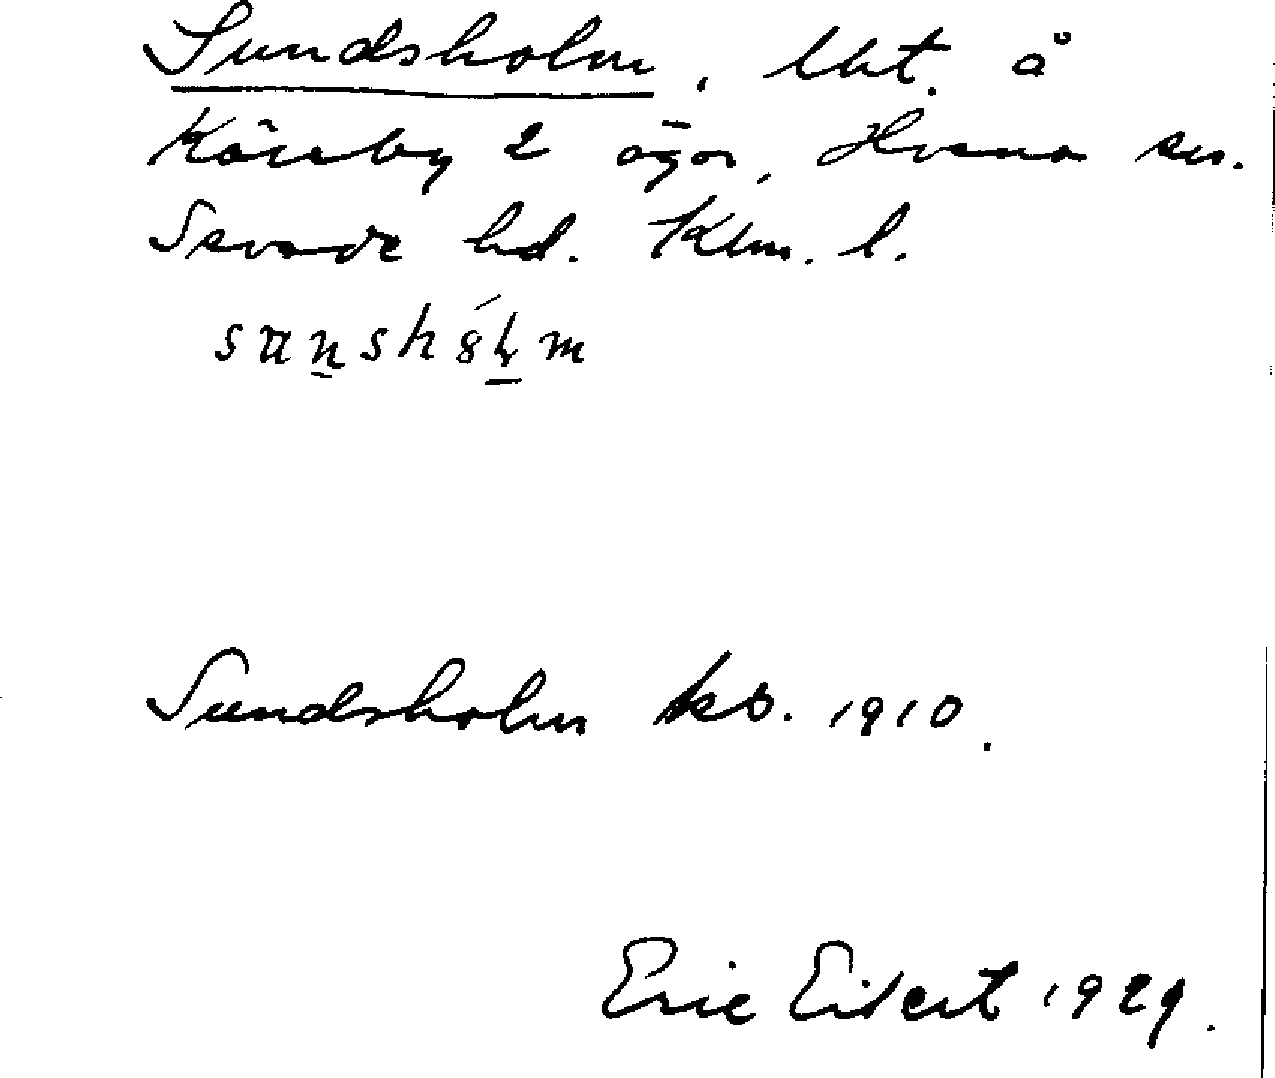 Sundsholm, lht. å
Kärrby 2 ägor, Hvena sn.
Sevede hd. Klm. l.
Sundsholm kb. 1910.
Eric Elsert 1929.